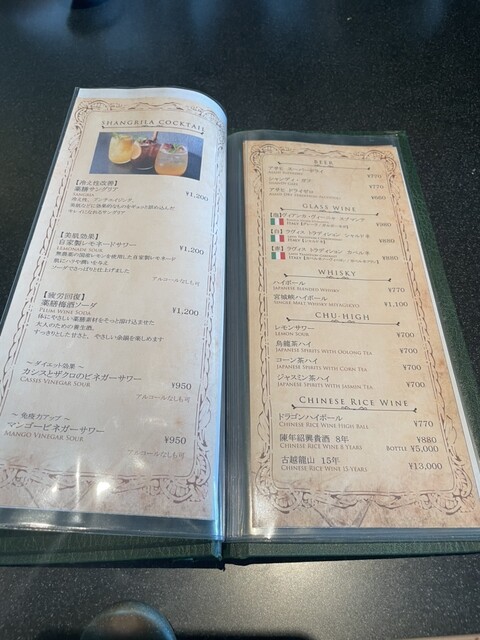 SHANGRILA COCKTAIL
【冷え性改善】
薬膳サングリア
¥1,200
【美肌効果】
自家製レモネードサワー
¥1,200
LEMONADE SOUR
無農薬の国産レモンを使用した自家製レモネード
肌にハリや潤いを与え
ソーダでさっぱりと仕上げました
アルコールなしも可
【疲労回復】
薬膳梅酒ソーダ
¥1,200
PLUM WINE SODA
体にやさしい薬膳素材をそっと溶け込ませた
大人のための養生酒。
すっきりとした甘さと、やさしい余韻を楽しめます
～ダイエット効果～
カシスとザクロのビネガーサワー
¥950
CASSIS VINEGAR SOUR
アルコールなしも可
～免疫力アップ～
マンゴービネガーサワー
¥950
MANGO VINEGAR SOUR
アルコールなしも可
BEER
アサヒ スーパードライ
¥770
シャンディ・ガフ
¥770
アサヒ ドライゼロ
¥660
GLASS WINE
¥980
¥880
¥880
WHISKY
ハイボール
¥770
JAPANESE BLENDED WHISKY
宮城峡ハイボール
¥1,100
SINGLE MALT WHISKY MIYAGIKYO
CHU-HIGH
レモンサワー
¥700
LEMON SOUR
烏龍茶ハイ
¥700
JAPANESE SPIRITS WITH OOLONG TEA
コーン茶ハイ
¥700
JAPANESE SPIRITS WITH CORN TEA
ジャスミン茶ハイ
¥700
JAPANESE SPIRITS WITH JASMIN TEA
CHINESE RICE WINE
ドラゴンハイボール
¥770
CHINESE RICE WINE HIGH BALL
陳年紹興貴酒 8年
¥880
CHINESE RICE WINE 8 YEARS
BOTTLE ¥5,000
古越龍山 15年
¥13,000
CHINESE RICE WINE 15 YEARS